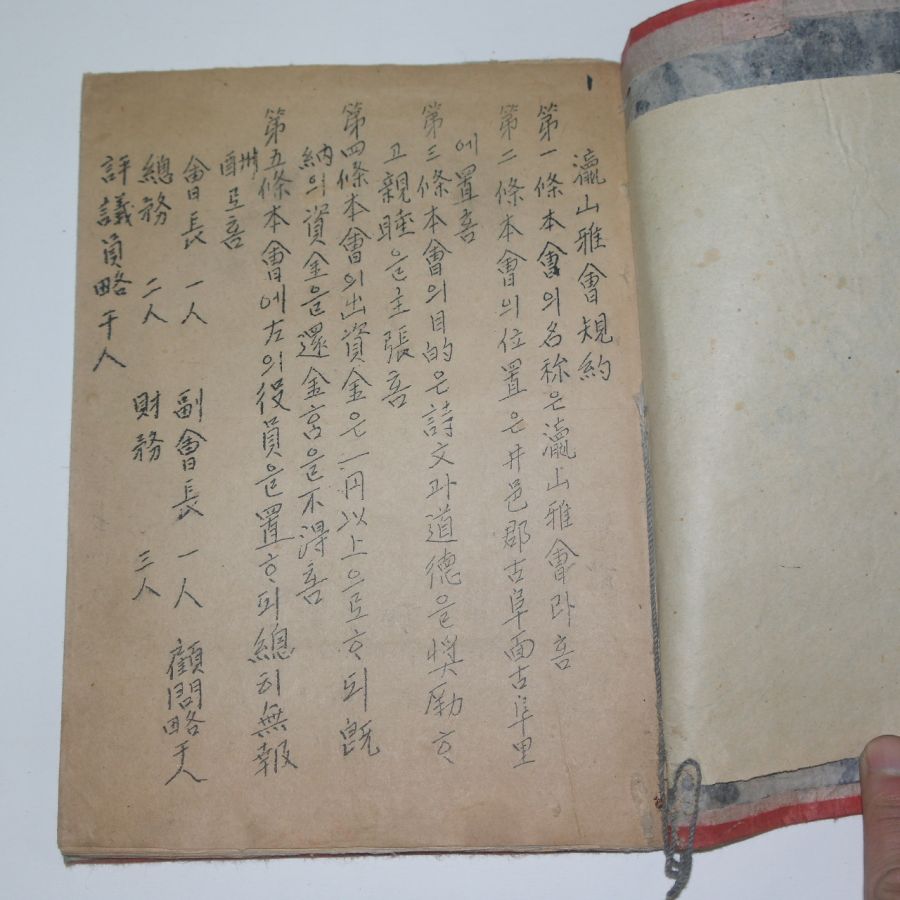 瀛山雅會規約
第一條本會의名称은瀛山雅會라홈
第二條本會의位置은井邑郡古阜面古阜里
에置홈
第三條本會의目的은詩文과道德을奬勵ᄒᆞ
고親睦을主張홈
第四條本會의出資金은一円以上으로ᄒᆞ되旣
納의資金을還金홈을不得홈
第五條本會에左의役員을置ᄒᆞ되總히無報
酬로홈
會長 一人 副會長 一人 顧問略干人
總務 二人 財務 三人
評議員略干人